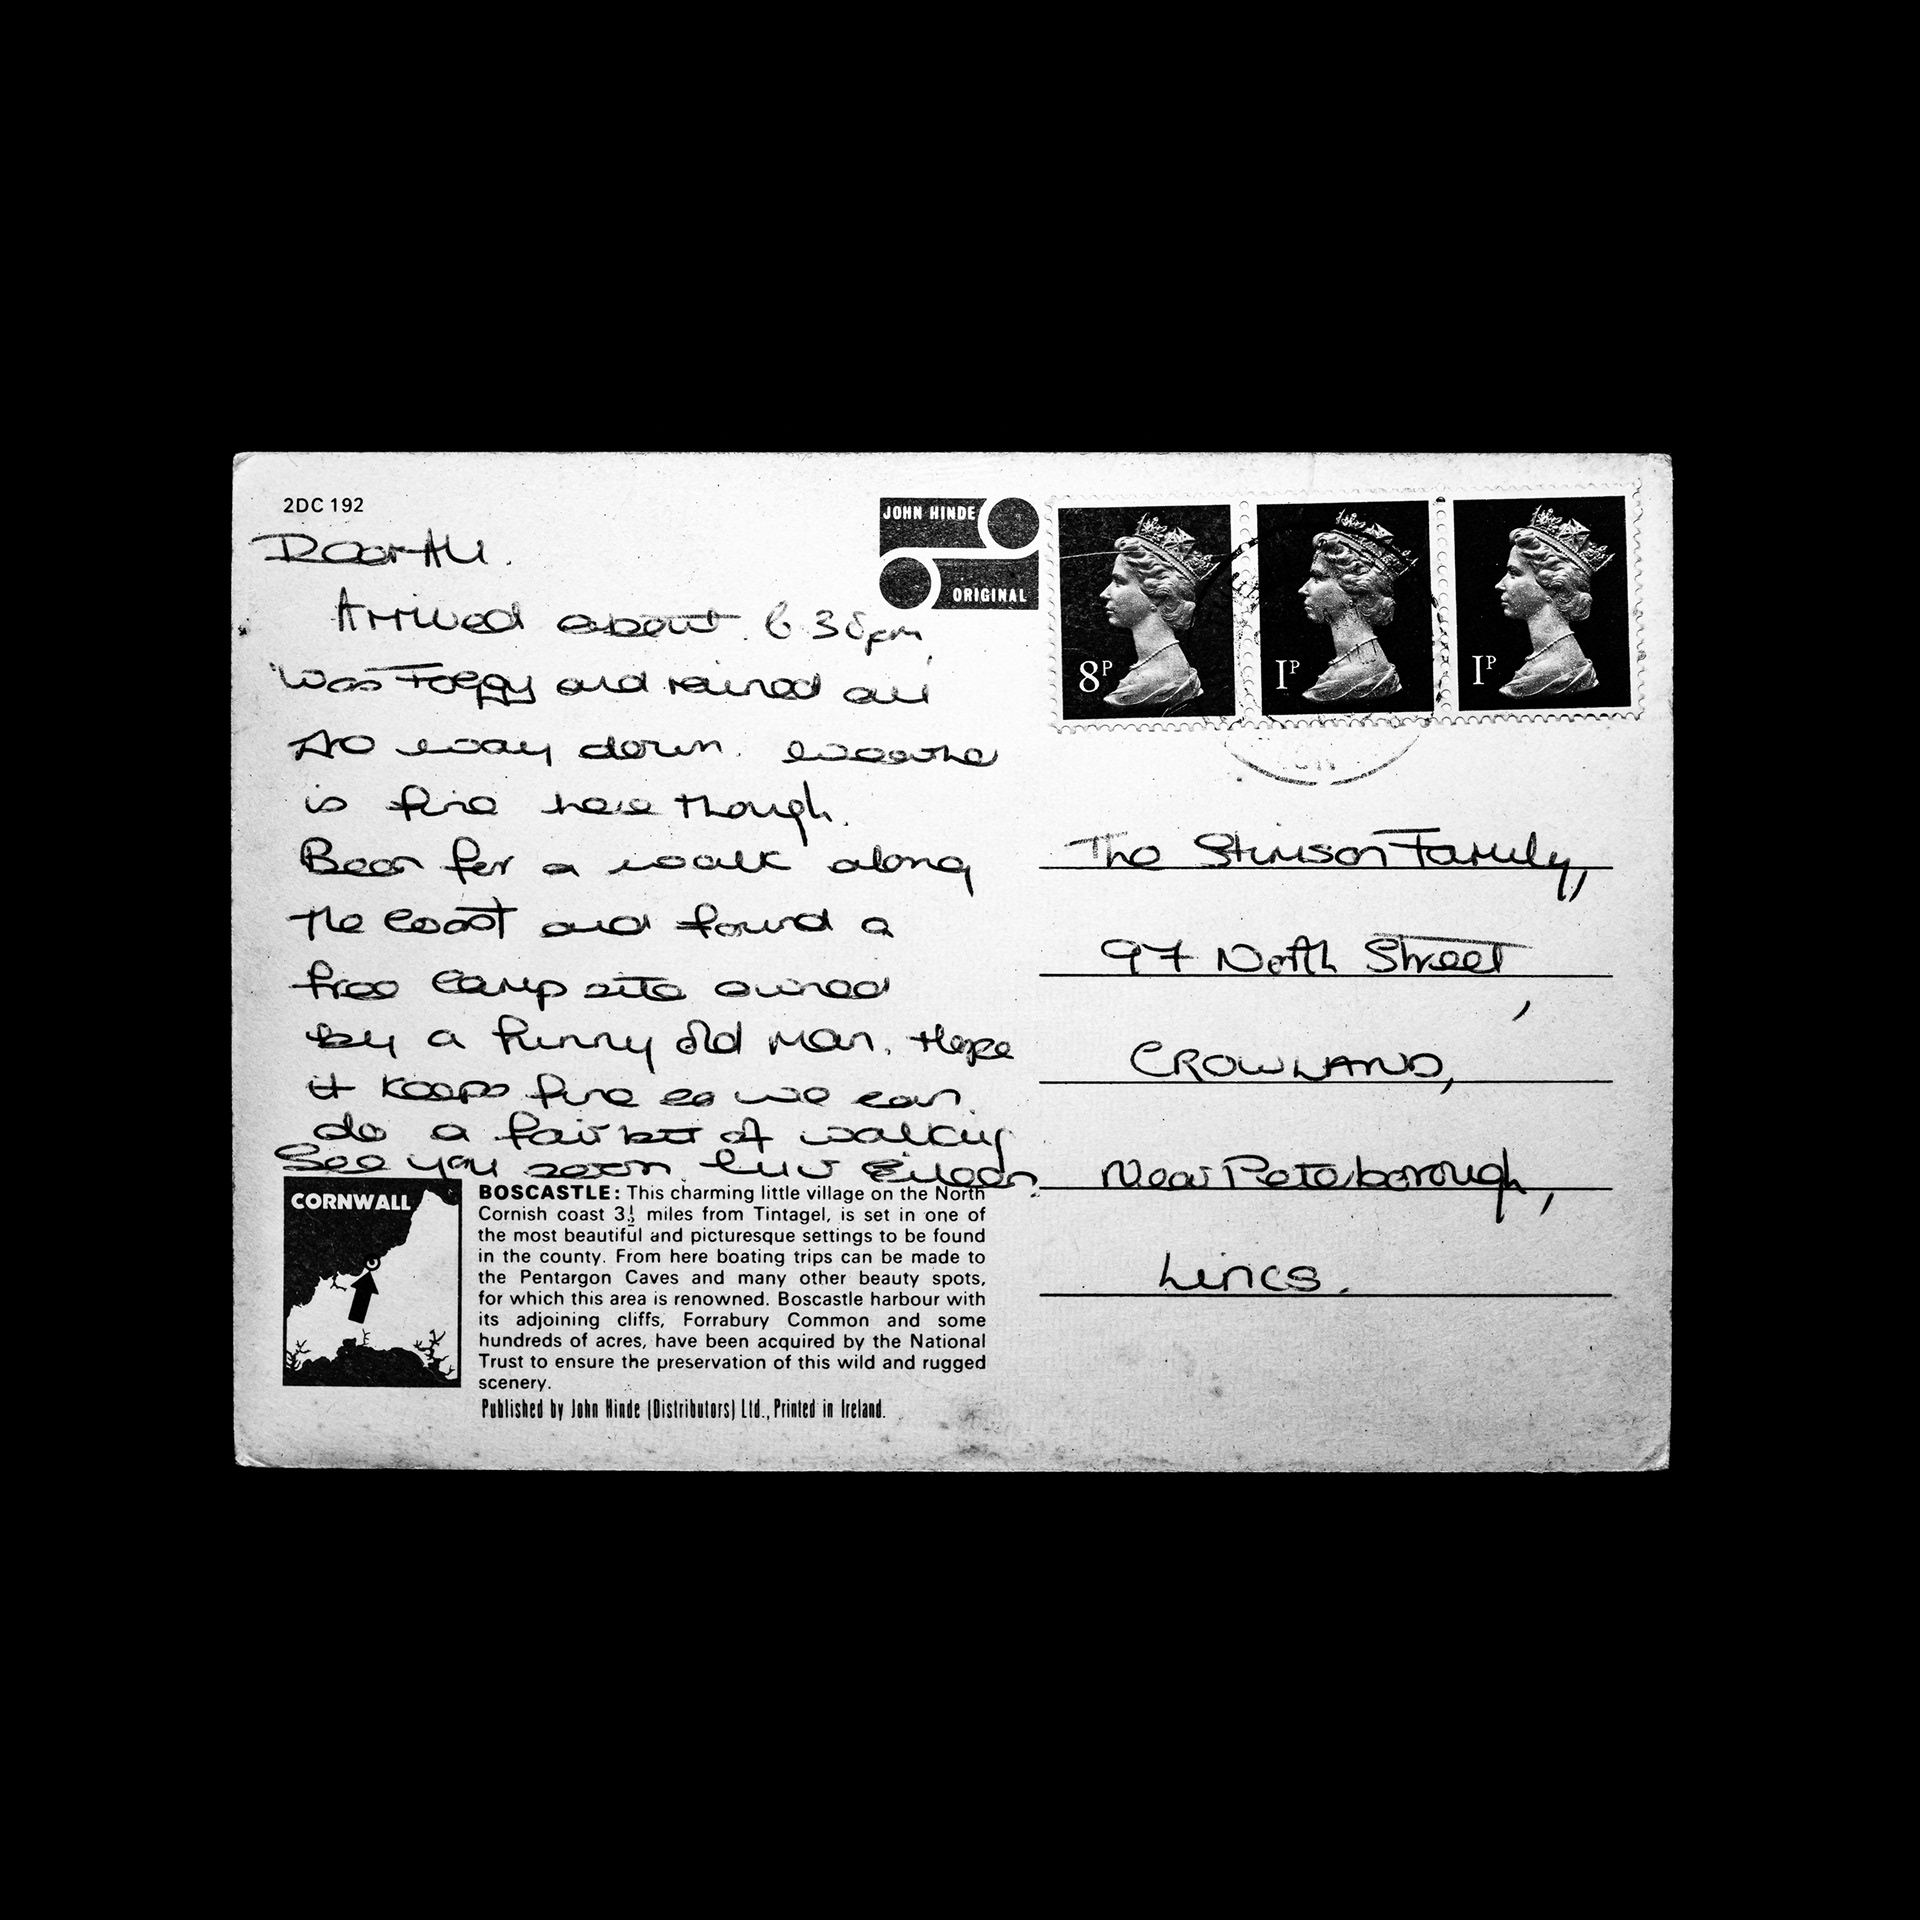 2DC 192
JOHN HINDE
ORIGINAL
8P
1P
1P
Dear All.
Arrived about 6 30pm,
was Foggy and rained all
the way down. weather
is fine here though.
Been for a walk along
the coast and found a
free camp site owned
by a funny old man. Hope
it keeps fine so we can
do a fair bit of walking
See you soon. luv Eileen.
The Stimson Family,
97 North Street,
CROWLAND,
Near Peterborough,
Lincs.
CORNWALL
BOSCASTLE: This charming little village on the North
Cornish coast 3½ miles from Tintagel, is set in one of
the most beautiful and picturesque settings to be found
in the county. From here boating trips can be made to
the Pentargon Caves and many other beauty spots,
for which this area is renowned. Boscastle harbour with
its adjoining cliffs, Forrabury Common and some
hundreds of acres, have been acquired by the National
Trust to ensure the preservation of this wild and rugged
scenery.
Published by John Hinde (Distributors) Ltd., Printed in Ireland.